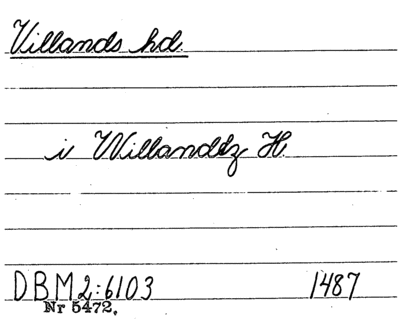 Villands hd.
i Willandtz H.
DBM 2:6103 1487
Nr 5472.